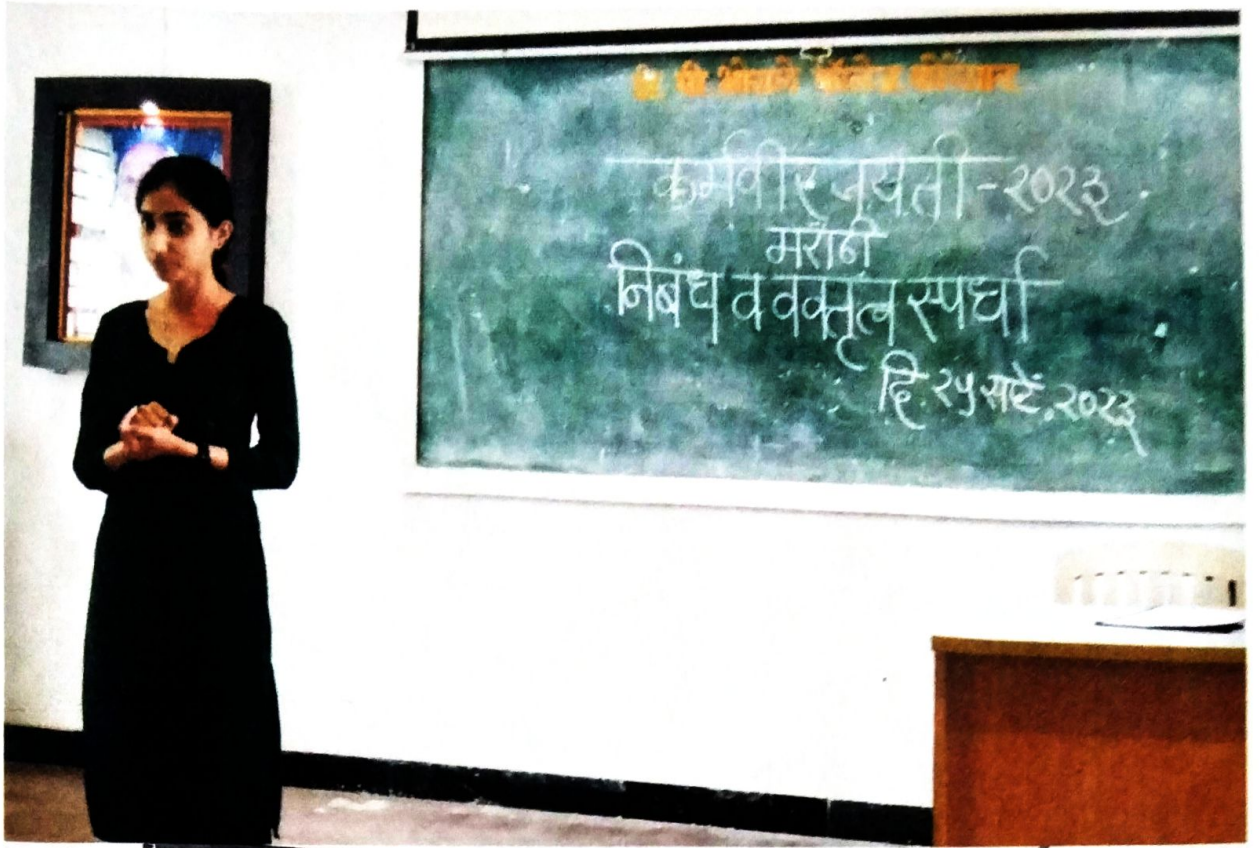 कर्मवीर जयंती - २०२३
मराठी
निबंध व वक्तृत्व स्पर्धा
दि. २५ सप्टें. २०२३